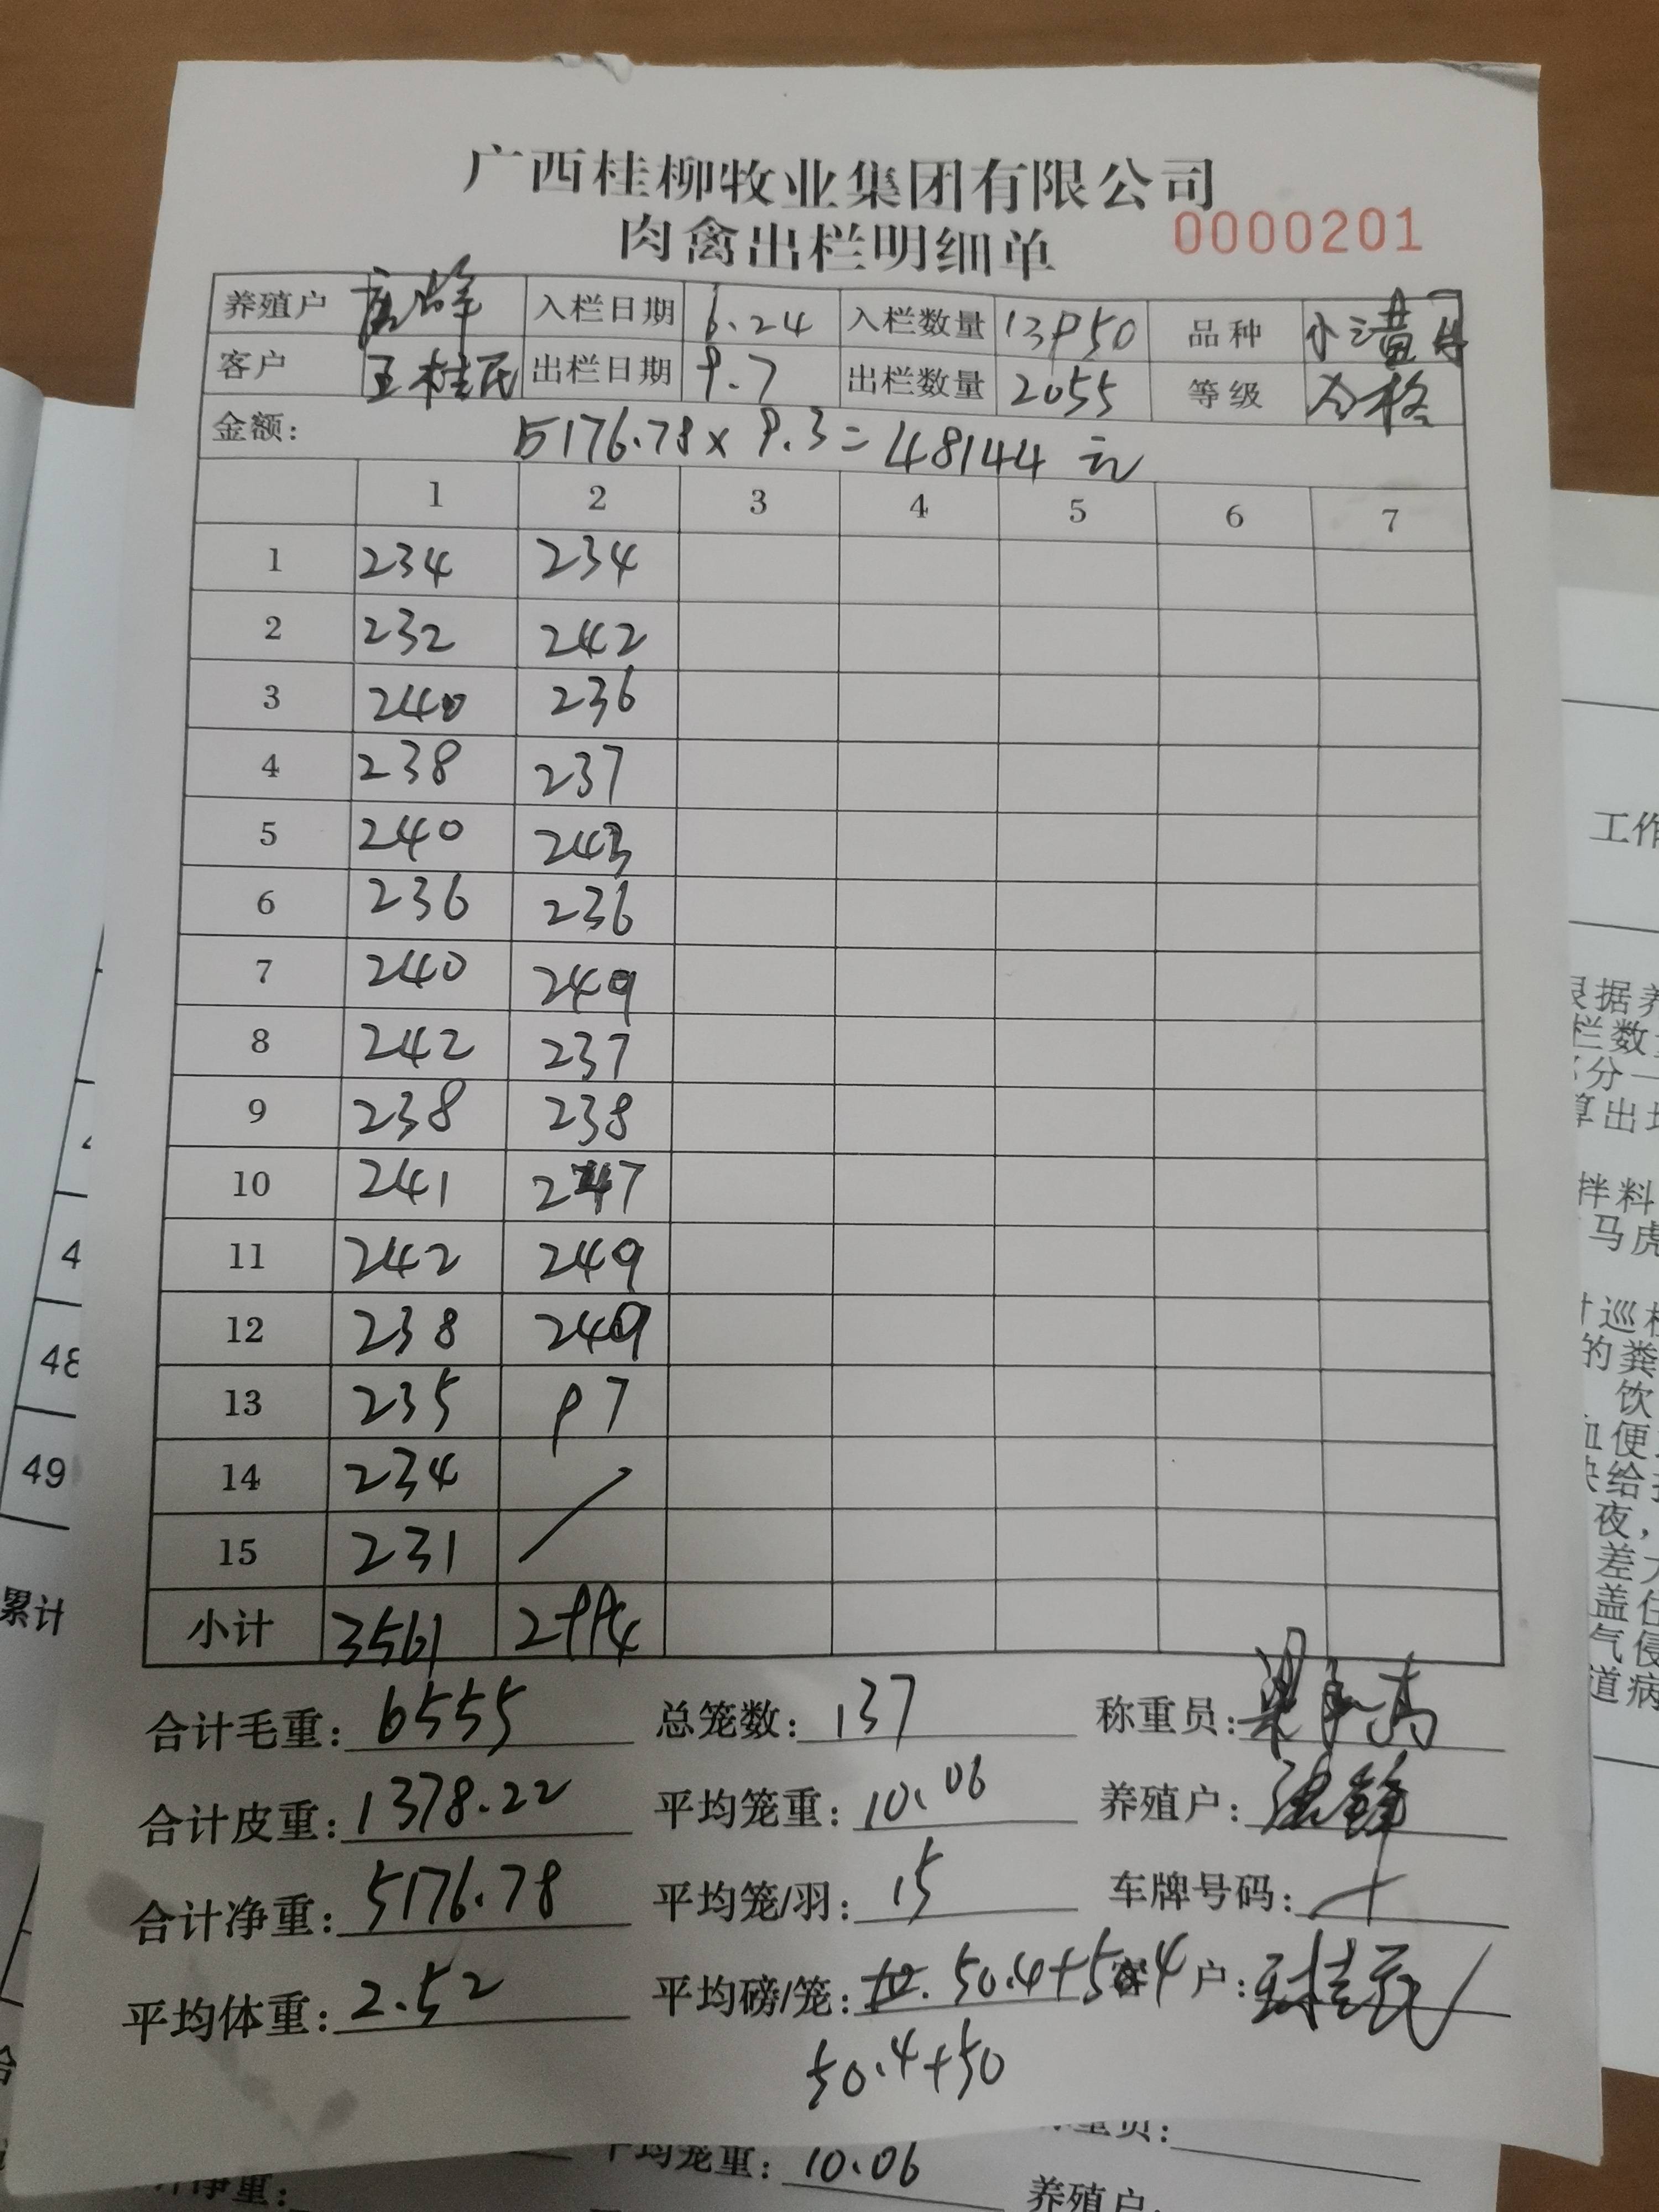 广西桂柳牧业集团有限公司
肉禽出栏明细单 0000201
养殖户 入栏日期 6.24 入栏数量 13950 品种 小黄
客户 王桂民 出栏日期 9.7 出栏数量 2055 等级 合格
金额: 5176.78 x 9.3 = 48144 元
1 2 3 4 5 6 7
1 234 234
2 232 242
3 240 236
4 238 237
5 240 243
6 236 236
7 240 249
8 242 237
9 238 238
10 241 247
11 242 249
12 238 249
13 235 97
14 234
15 231
小计 3561 2994
合计毛重: 6555 总笼数: 137 称重员:
合计皮重: 1378.22 平均笼重: 10.06 养殖户:
合计净重: 5176.78 平均笼/羽: 15 车牌号码:
平均体重: 2.52 平均磅/笼: 50.4+50.4 客户: 王桂民
50.4+50
平均笼重: 10.06
养殖户:
计净重:
4
48
49
累计
工作
据养
栏数
分一
算出
拌料
马虎
巡
的粪
饮
血便
给
夜,
差
盖住
气侵
道病